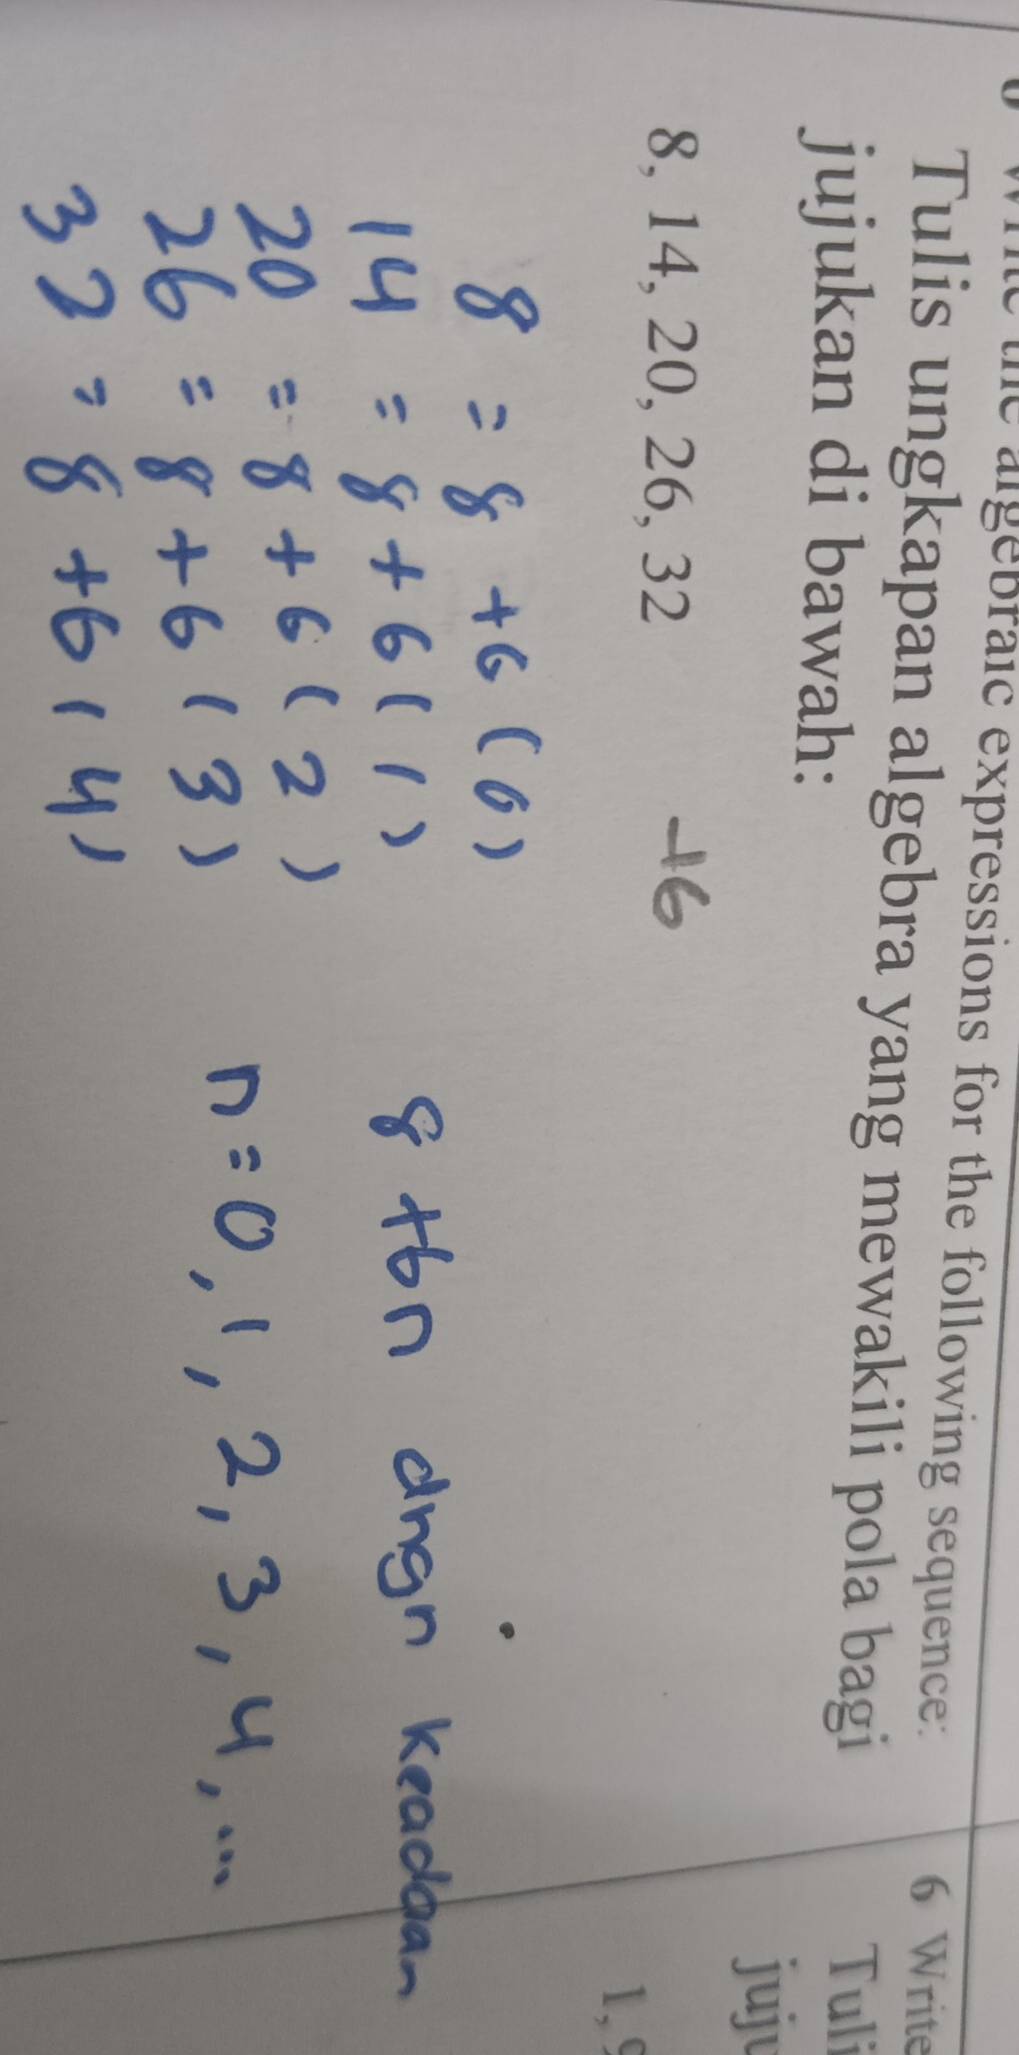 the algebraic expressions for the following sequence:
Tulis ungkapan algebra yang mewakili pola bagi
jujukan di bawah:
8, 14, 20, 26, 32 +6
8 = 8 + 6 (0)
14 = 8 + 6 ( 1 )
20 = 8 + 6 ( 2 )
26 = 8 + 6 ( 3 )
32 = 8 + 6 ( 4 )
8 + 6n dngn keadaan
n = 0, 1, 2, 3, 4, ...
6 Write
Tuli
juju
1,